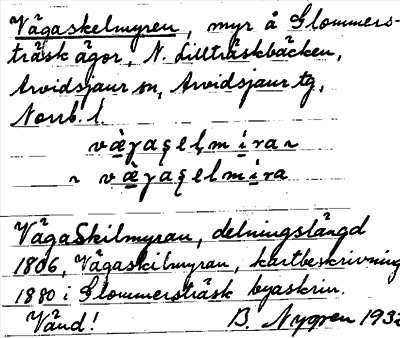 Vägaskelmyren, myr å Glommers-
träsk ägor, N. Lillträskbäcken,
Arvidsjaur sn, Arvidsjaur tg,
Norrb. l.
væ̀gaʂelmi̱ra ~
~ væ̀gaʂelmi̱ra
VägaSkilmyran, delningslängd
1806, Vägaskilmyran, kartbeskrivning
1880 i Glommersträsk byaskrin.
Vänd! B. Nygren